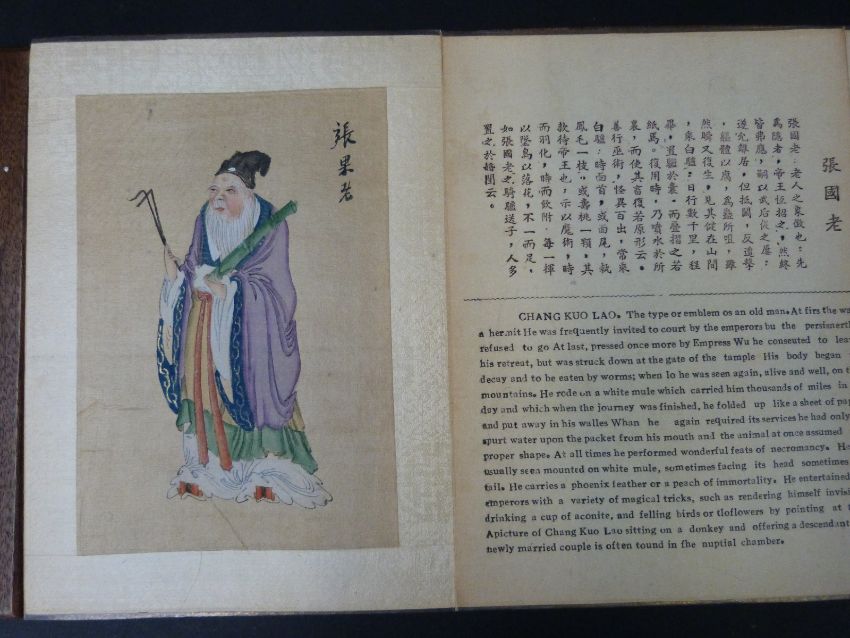 張果老
張國老
張國老：老人之象徵也：先
為隱者，帝王恆招之，然終
皆弗應，嗣以武后促之屢：
遂允離居，但抵闕，反遭擊
，軀體以腐，為蟲所咀，雖
然瞬又復生，見其健在山間
，乘白騾：日行數千里，程
畢，置騾於囊。而疊摺之若
紙馬。復用時，乃噴水於所
裹，而使其畜復若原形云。
善行巫術，怪異百出，常乘
白騾：時面首，或面尾，執
鳳毛一枝，或壽桃一顆，其
款待帝王也，示以魔術，時
而羽化，時而飲酖，每一揮
以墜鳥以落花，不一而足，
如張國老之騎騾送子，人多
置之於婚闈云。
CHANG KUO LAO. The type or emblem os an old man. At firs the wa
a hermit He was frequently invited to court by the emperors bu the persisnertl
refused to go At last, pressed once more by Empress Wu he conseuted to lea
his retreat, but was struck down at the gate of the tample His body began
decay and to be eaten by worms; when lo he was seen again, alive and well, on t
mountains. He rode on a white mule which carried him thousands of miles in
day and which when the journey was finished, he folded up like a sheet of pap
and put away in his walles Whan he again required its services he had only
spurt water upon the packet from his mouth and the animal at once assumed
proper shape. At all times he performed wonderful feats of necromancy. He
usually seen mounted on white mule, sometimes facing its head sometimes
tail. He carries a phoenix feather or a peach of immortality. He entertained
emperors with a variety of magical tricks, such as rendering himself invisi
drinking a cup of aconite, and felling birds or tloflowers by pointing at t
Apicture of Chang Kuo Lao sitting on a donkey and offering a descendant
newly married couple is often tound in fhe nuptial chamber.